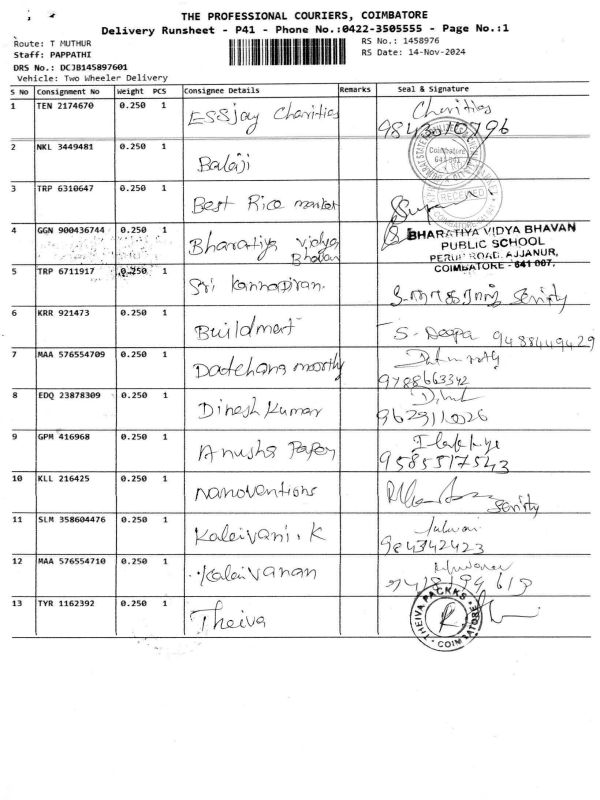 THE PROFESSIONAL COURIERS, COIMBATORE
Delivery Runsheet - P41 - Phone No.:0422-3505555 - Page No.:1
Route: T MUTHUR
RS No.: 1458976
Staff: PAPPATHI
RS Date: 14-Nov-2024
DRS No.: DCJB145897601
Vehicle: Two Wheeler Delivery
S No Consignment No Weight PCS Consignee Details Remarks Seal & Signature
1 TEN 2174670 0.250 1 ESSjay Charities Charities
9843310796
2 NKL 3449481 0.250 1 Balaji
Coimbatore
RECEIVED
3 TRP 6310647 0.250 1 Best Rice market
4 GGN 900436744 0.250 1 Bharatiya Vidya Bhavan
BHARATIYA VIDYA BHAVAN
PUBLIC SCHOOL
PERUR ROAD, AJJANUR,
COIMBATORE - 641 007.
5 TRP 6711917 0.250 1 Sri Kannapiran.
6 KRR 921473 0.250 1 Buildmart S. Deepa 9488449429
7 MAA 576554709 0.250 1 Datchana moorthy
9788663342
8 EDQ 23878309 0.250 1 Dinesh Kumar
9 GPM 416968 0.250 1 Anusha Paper
9585517543
10 KLL 216425 0.250 1 Nanoventions
11 SLM 358604476 0.250 1 Kaleivani. K
984342423
12 MAA 576554710 0.250 1 Kaleivanan
13 TYR 1162392 0.250 1 Theiva
THEIVA PACKKS
COIMBATORE